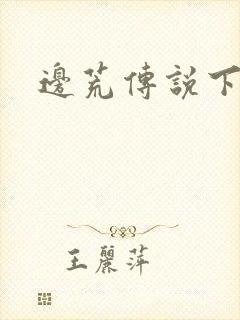 邊荒傳說下
王麗萍